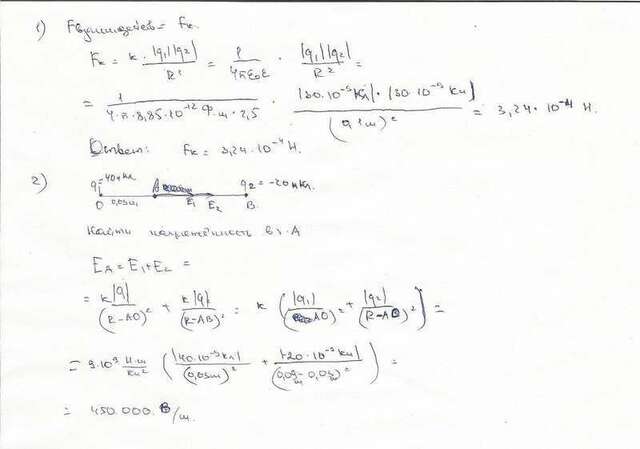 1) Fвзаимодейств = Fк.
Fк = к · |q1||q2| / R² = 1 / 4πε0ε · |q1||q2| / R² =
= 1 / 4·π·8,85·10⁻¹² Ф·м · 2,5 · |30·10⁻⁹ Кл|·|30·10⁻⁹ Кл| / (0,1м)² = 3,24·10⁻⁴ Н.
Ответ: Fк = 3,24·10⁻⁴ Н.
2) q1=40нКл. A q2=-20нКл.
O 0,03м E1 E2 B.
Найти напряжённость в т. А
EA = E1+E2 =
= к|q| / (R-AO)² + к|q| / (R-AB)² = к ( |q1| / (AO)² + |q2| / (R-AO)² ) =
= 9·10⁹ Н·м / Кл² ( |40·10⁻⁹ Кл| / (0,03м)² + |-20·10⁻⁹ Кл| / (0,09м - 0,03м)² ) =
= 450.000 В/м.